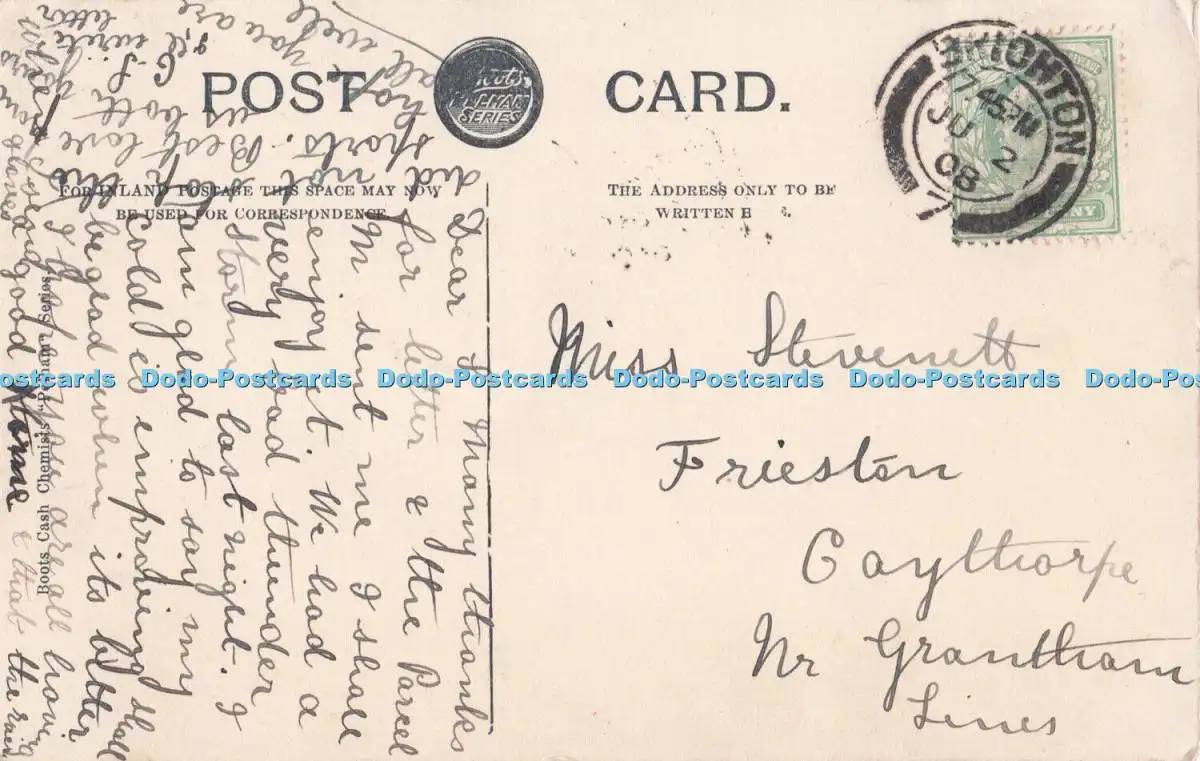 POST CARD.
Boots
PELHAM
SERIES
FOR INLAND POSTAGE THIS SPACE MAY NOW
BE USED FOR CORRESPONDENCE.
THE ADDRESS ONLY TO BE
WRITTEN
BRIGHTON
7.45PM
JU 2
08
Miss Stevenett
Frieston
Caythorpe
Nr Grantham
Lincs
Dear Many thanks
for letter & the Parcel
M sent me I shall
enjoy it. We had a
very bad thunder
storm last night. I
am glad to say my
cold is improving shall
be glad when its better
I hope you are all having
good time & that the
did not
sports. Best love
us both
hope you are
all well
Boots Cash Chemists "Pelham" Series.
Dodo-Postcards Dodo-Postcards Dodo-Postcards Dodo-Postcards Dodo-Postcards